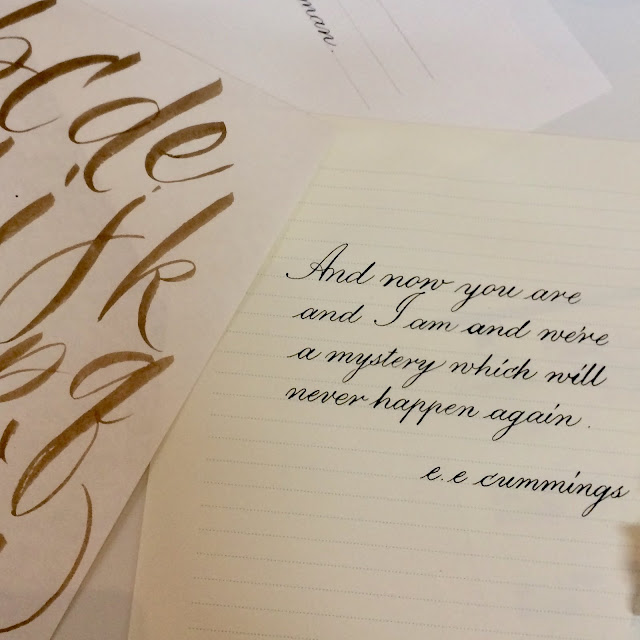 man.
c d e
j k
p q
And now you are
and I am and we're
a mystery which will
never happen again.
e.e cummings